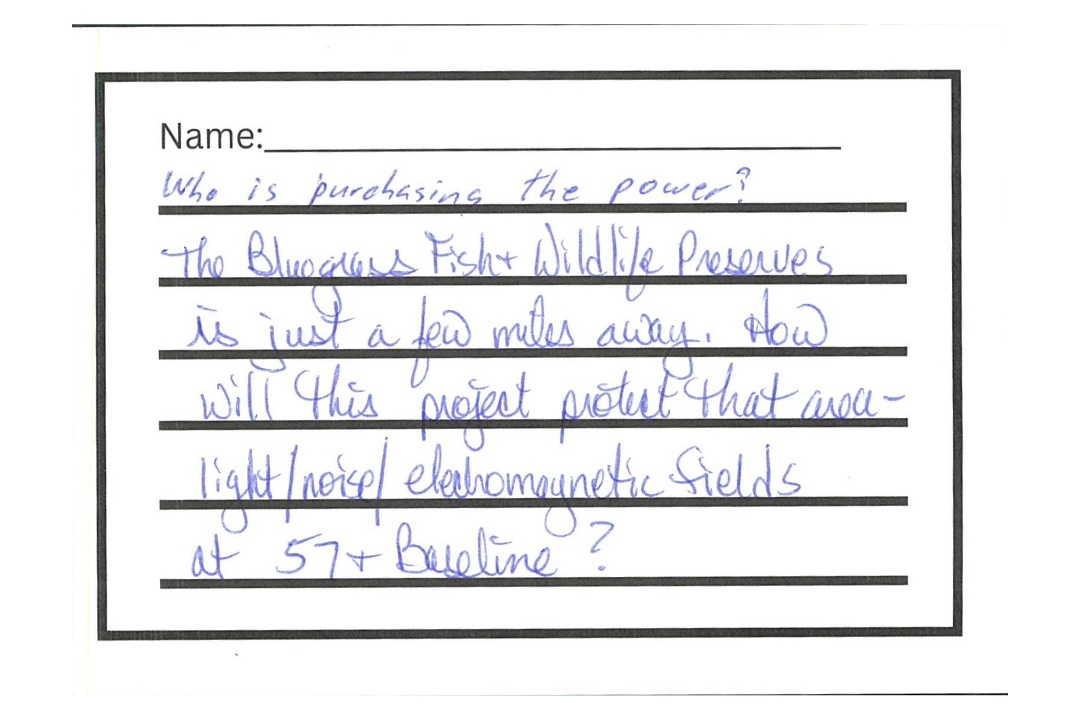 Name:
Who is purchasing the power?
The Bluegrass Fish + Wildlife Preserves
is just a few miles away. How
will this project protect that area-
light/noise/electromagnetic fields
at 57 + Baseline?